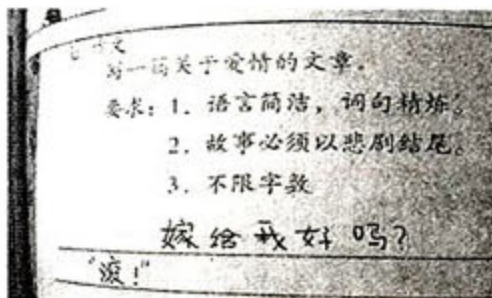 作文
写一篇关于爱情的文章。
要求：1. 语言简洁，词句精炼。
2. 故事必须以悲剧结尾。
3. 不限字数
嫁给我好吗？
"滚！"